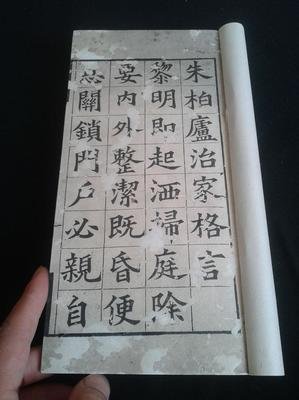 朱柏廬治家格言
黎明即起洒掃庭除
要内外整潔既昏便
息關鎖門戶必親自